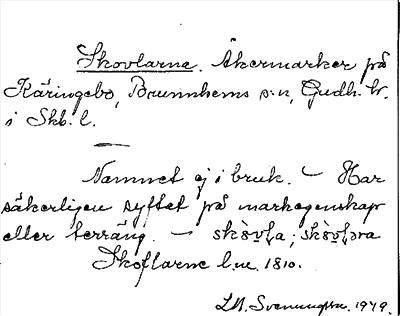 Skovlarne. Åkermarker på
Käringebo, Brunnhems s:n, Gudh. hr.
i Skb. l.
Namnet ej i bruk. – Har
säkerligen syftat på markegenskap
eller terräng. –
Skoflarne l.m. 1810.
Svenungsson. 1979.